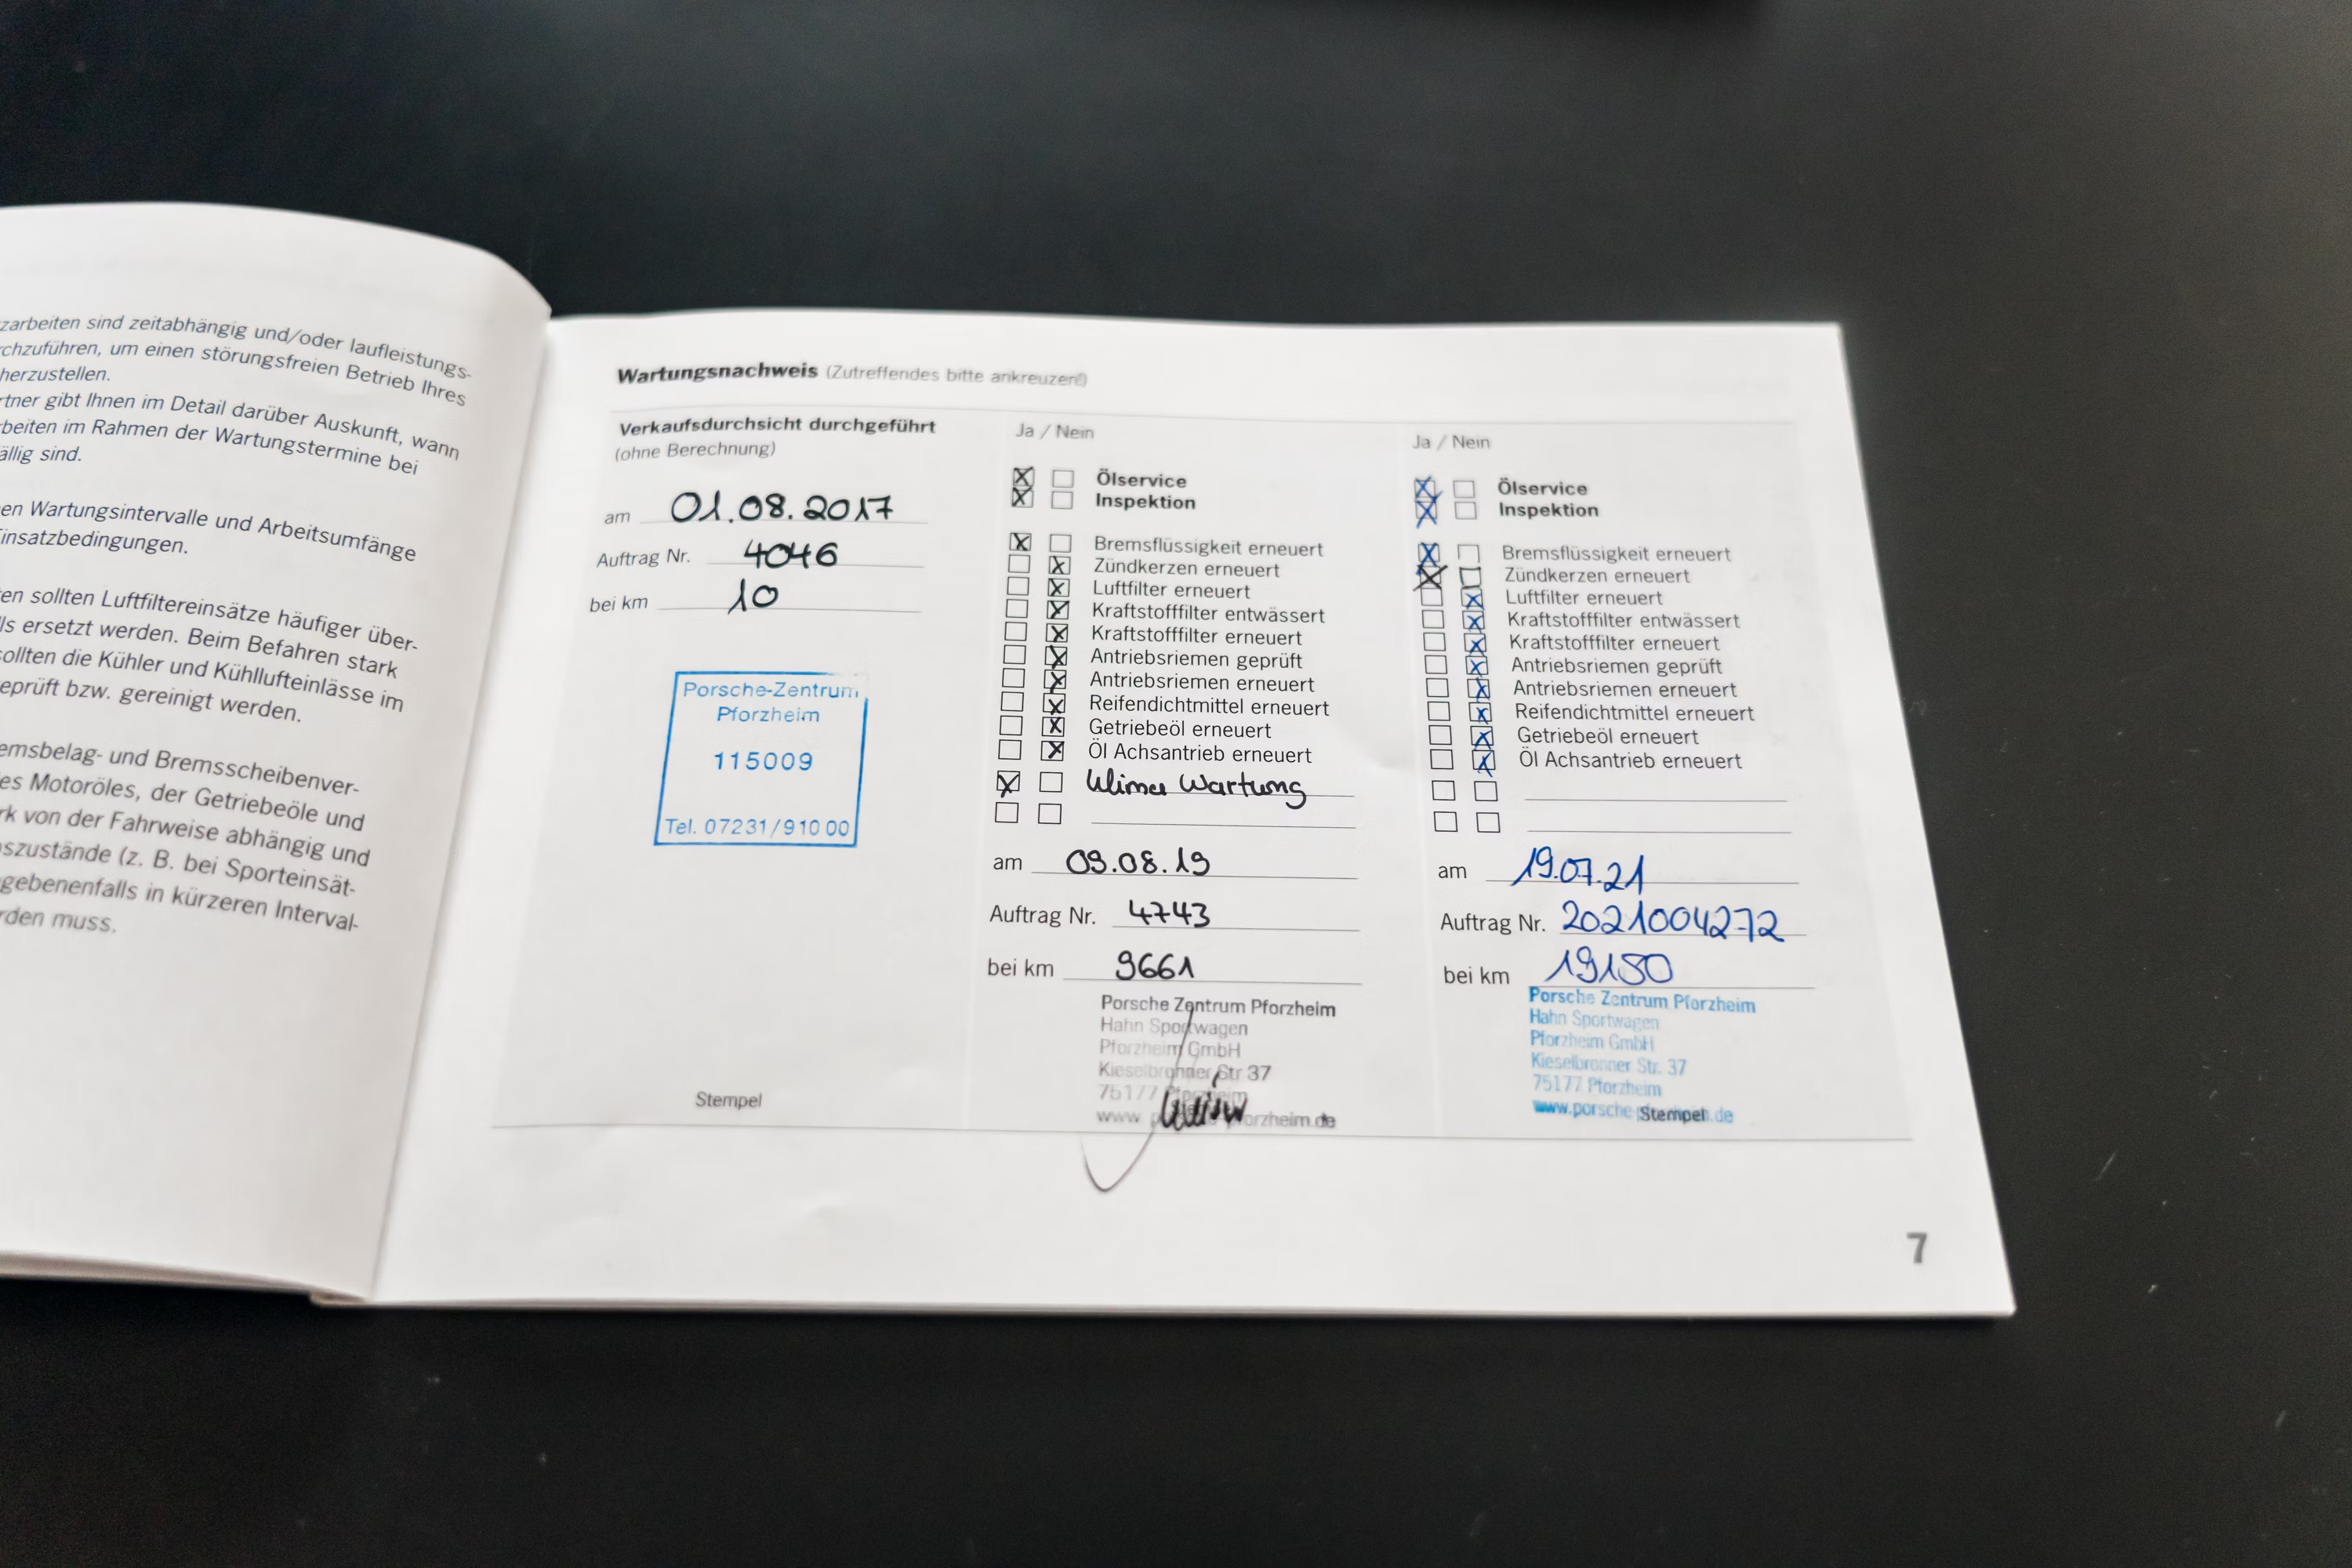 zarbeiten sind zeitabhängig und/oder laufleistungs-
chzuführen, um einen störungsfreien Betrieb Ihres
herzustellen.
rtner gibt Ihnen im Detail darüber Auskunft, wann
beiten im Rahmen der Wartungstermine bei
ällig sind.
en Wartungsintervalle und Arbeitsumfänge
insatzbedingungen.
en sollten Luftfiltereinsätze häufiger über-
lls ersetzt werden. Beim Befahren stark
sollten die Kühler und Kühllufteinlässe im
eprüft bzw. gereinigt werden.
emsbelag- und Bremsscheibenver-
es Motoröles, der Getriebeöle und
rk von der Fahrweise abhängig und
szustände (z. B. bei Sporteinsät-
gebenenfalls in kürzeren Interval-
rden muss.
Wartungsnachweis (Zutreffendes bitte ankreuzen!)
Verkaufsdurchsicht durchgeführt
(ohne Berechnung)
am 01.08.2017
Auftrag Nr. 4046
bei km 10
Porsche-Zentrum
Pforzheim
115009
Tel. 07231/910 00
Stempel
Ja / Nein
Ölservice
Inspektion
Bremsflüssigkeit erneuert
Zündkerzen erneuert
Luftfilter erneuert
Kraftstofffilter entwässert
Kraftstofffilter erneuert
Antriebsriemen geprüft
Antriebsriemen erneuert
Reifendichtmittel erneuert
Getriebeöl erneuert
Öl Achsantrieb erneuert
Klima Wartung
am 09.08.19
Auftrag Nr. 4743
bei km 9661
Porsche Zentrum Pforzheim
Hahn Sportwagen
Pforzheim GmbH
Kieselbronner Str 37
75177 Pforzheim
www. pforzheim.de
Ja / Nein
Ölservice
Inspektion
Bremsflüssigkeit erneuert
Zündkerzen erneuert
Luftfilter erneuert
Kraftstofffilter entwässert
Kraftstofffilter erneuert
Antriebsriemen geprüft
Antriebsriemen erneuert
Reifendichtmittel erneuert
Getriebeöl erneuert
Öl Achsantrieb erneuert
am 19.07.21
Auftrag Nr. 2021004272
bei km 19150
Porsche Zentrum Pforzheim
Hahn Sportwagen
Pforzheim GmbH
Kieselbronner Str. 37
75177 Pforzheim
www.porsche-pforzheim.de
Stempel
7